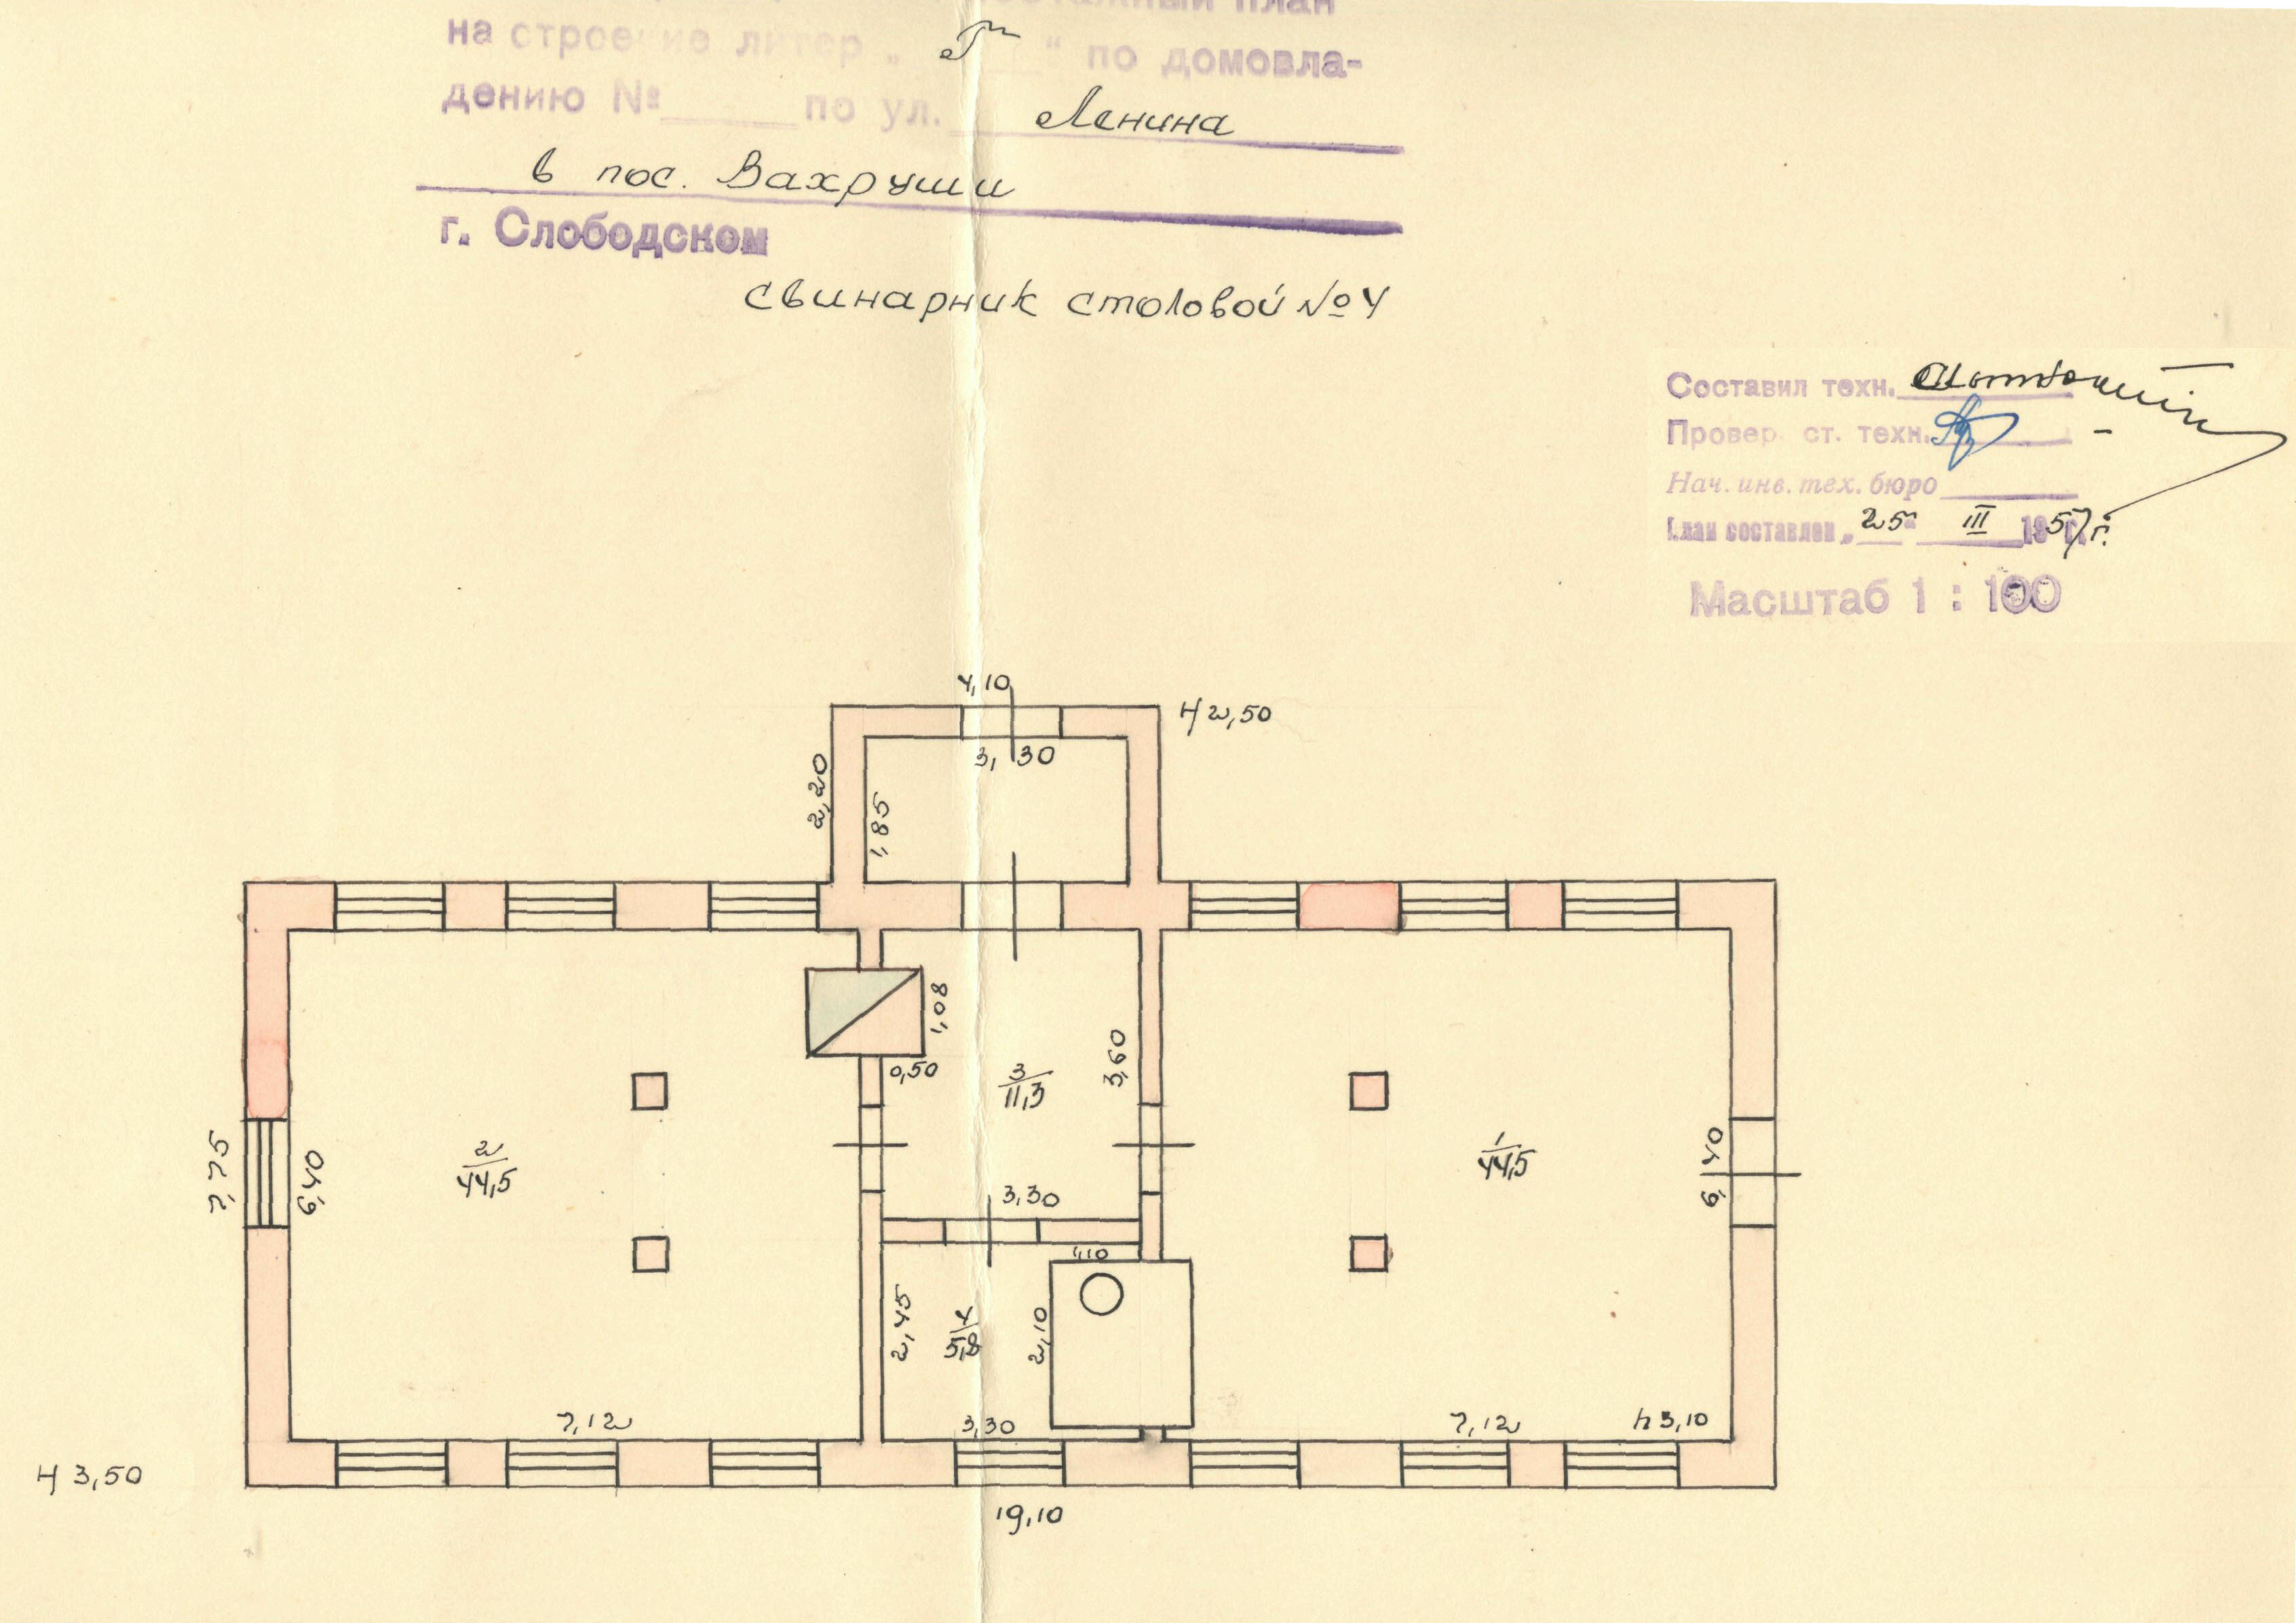 план
на строение литер „ Г " по домовла-
дению № по ул. Ленина
в пос. Вахруши
г. Слободском
свинарник столовой №4
Составил техн.
Провер. ст. техн.
Нач. инв. тех. бюро
План составлен „25" III 1957г.
Масштаб 1 : 100
4,10
Н 2,50
3,30
2,20
1,85
1,08
0,50
3
11,3
3,60
7,75
6,40
2
44,5
1
44,5
6,40
3,30
1,10
2,45
4
5,8
2,10
7,12
3,30
7,12
h 3,10
Н 3,50
19,10